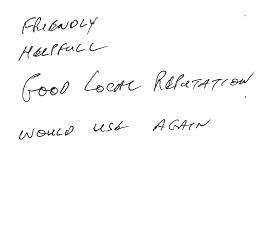 FRIENDLY
HELPFULL
GOOD LOCAL REPUTATION
WOULD USE AGAIN